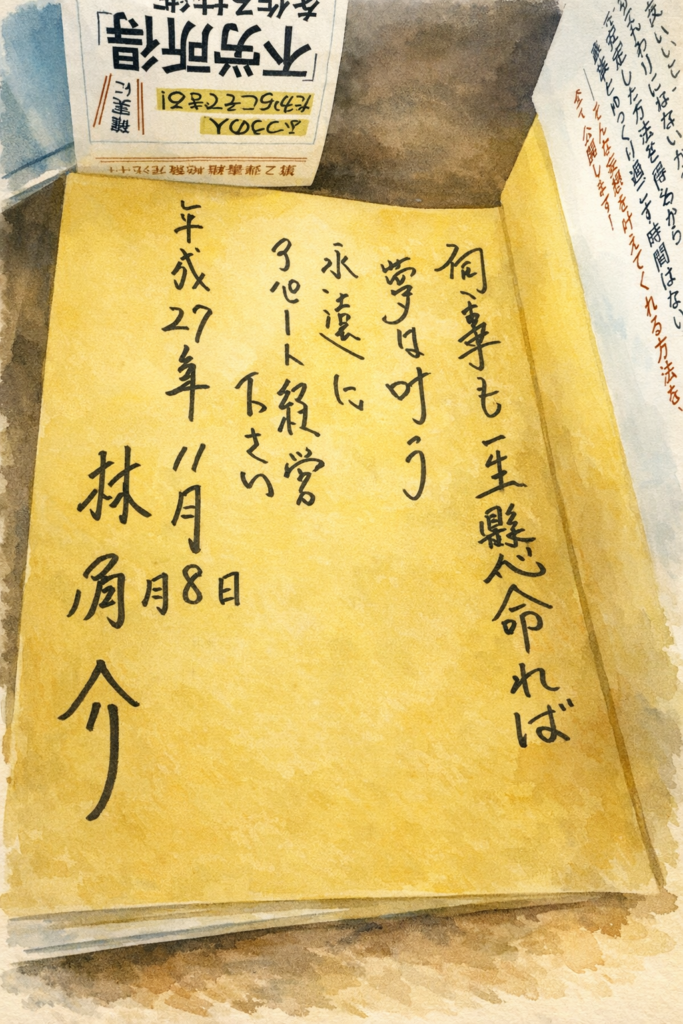 何事も一生懸命れば
夢は叶う
永遠に
アパート経営
下さい
年成27年11月
月8日
林
介
ふつうの人
だからこそできる!
確実に
「不労所得」
を作る技術
ゆっくり過ごす時間はない
そんな妄想を叶えてくれる方法を、
全て公開します!